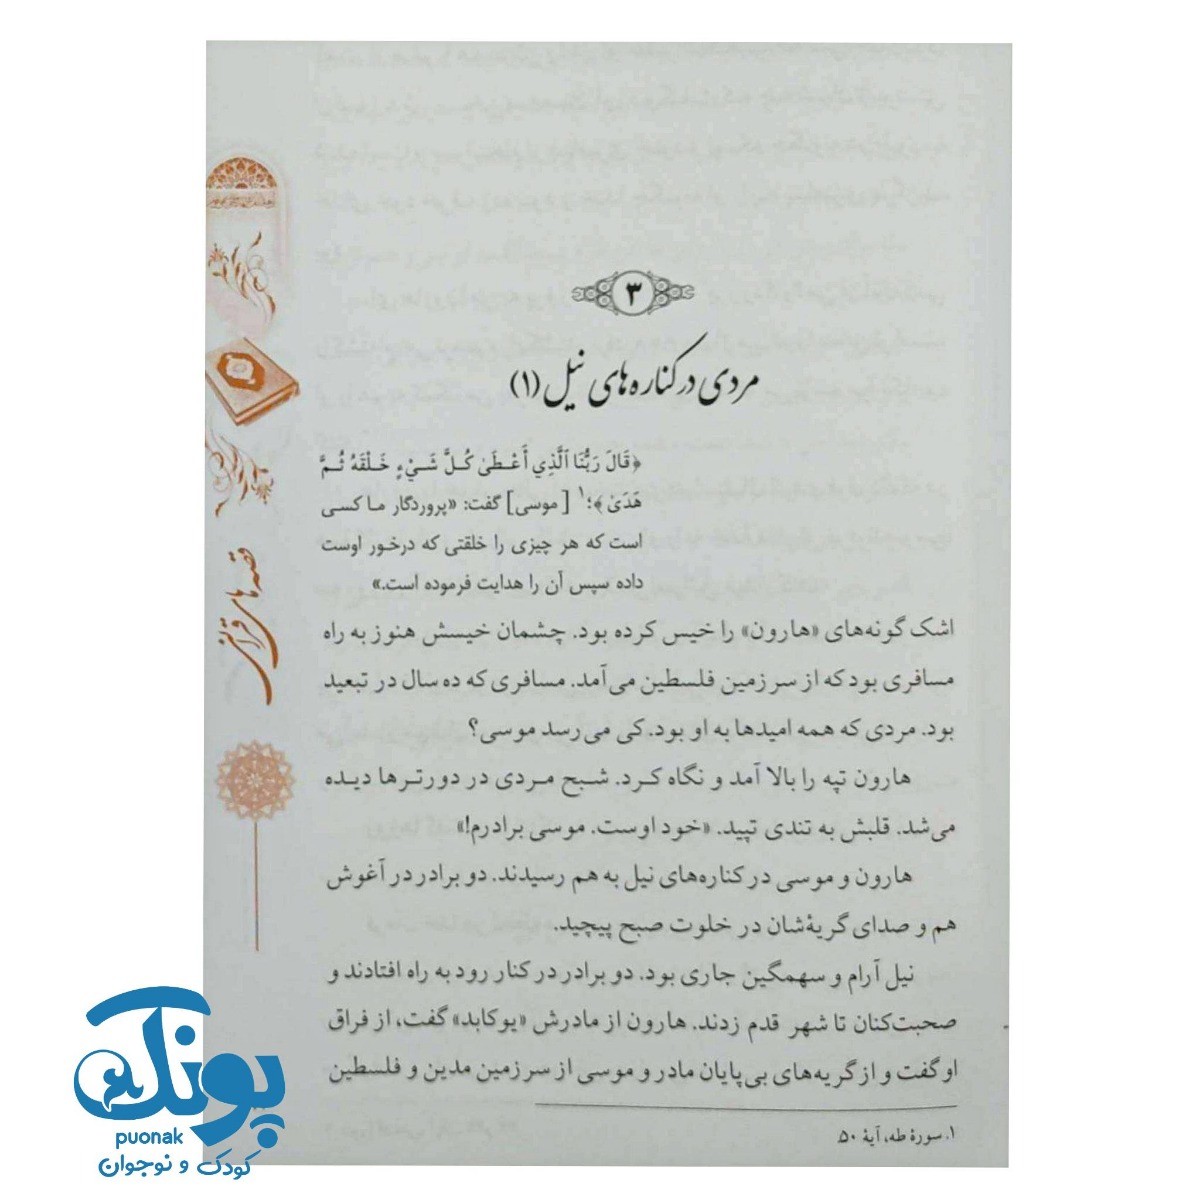 ۳
مردی در کناره‌های نیل (۱)
﴿قَالَ رَبُّنَا ٱلَّذِي أَعْطَىٰ كُلَّ شَيْءٍ خَلْقَهُ ثُمَّ
هَدَىٰ﴾؛۱ [موسی] گفت: «پروردگار ما کسی
است که هر چیزی را خلقتی که درخور اوست
داده سپس آن را هدایت فرموده است.»
اشک گونه‌های «هارون» را خیس کرده بود. چشمان خیسش هنوز به راه
مسافری بود که از سرزمین فلسطین می‌آمد. مسافری که ده سال در تبعید
بود. مردی که همه امیدها به او بود. کی می‌رسد موسی؟
هارون تپه را بالا آمد و نگاه کرد. شبح مردی در دورترها دیده
می‌شد. قلبش به تندی تپید. «خود اوست. موسی برادرم!»
هارون و موسی در کناره‌های نیل به هم رسیدند. دو برادر در آغوش
هم و صدای گریۀشان در خلوت صبح پیچید.
نیل آرام و سهمگین جاری بود. دو برادر در کنار رود به راه افتادند و
صحبت‌کنان تا شهر قدم زدند. هارون از مادرش «یوکابد» گفت، از فراق
او گفت و از گریه‌های بی‌پایان مادر و موسی از سرزمین مدین و فلسطین
۱. سورۀ طه، آیۀ ۵۰.
قصه‌های قرآنی
پونک
puonak
کودک و نوجوان